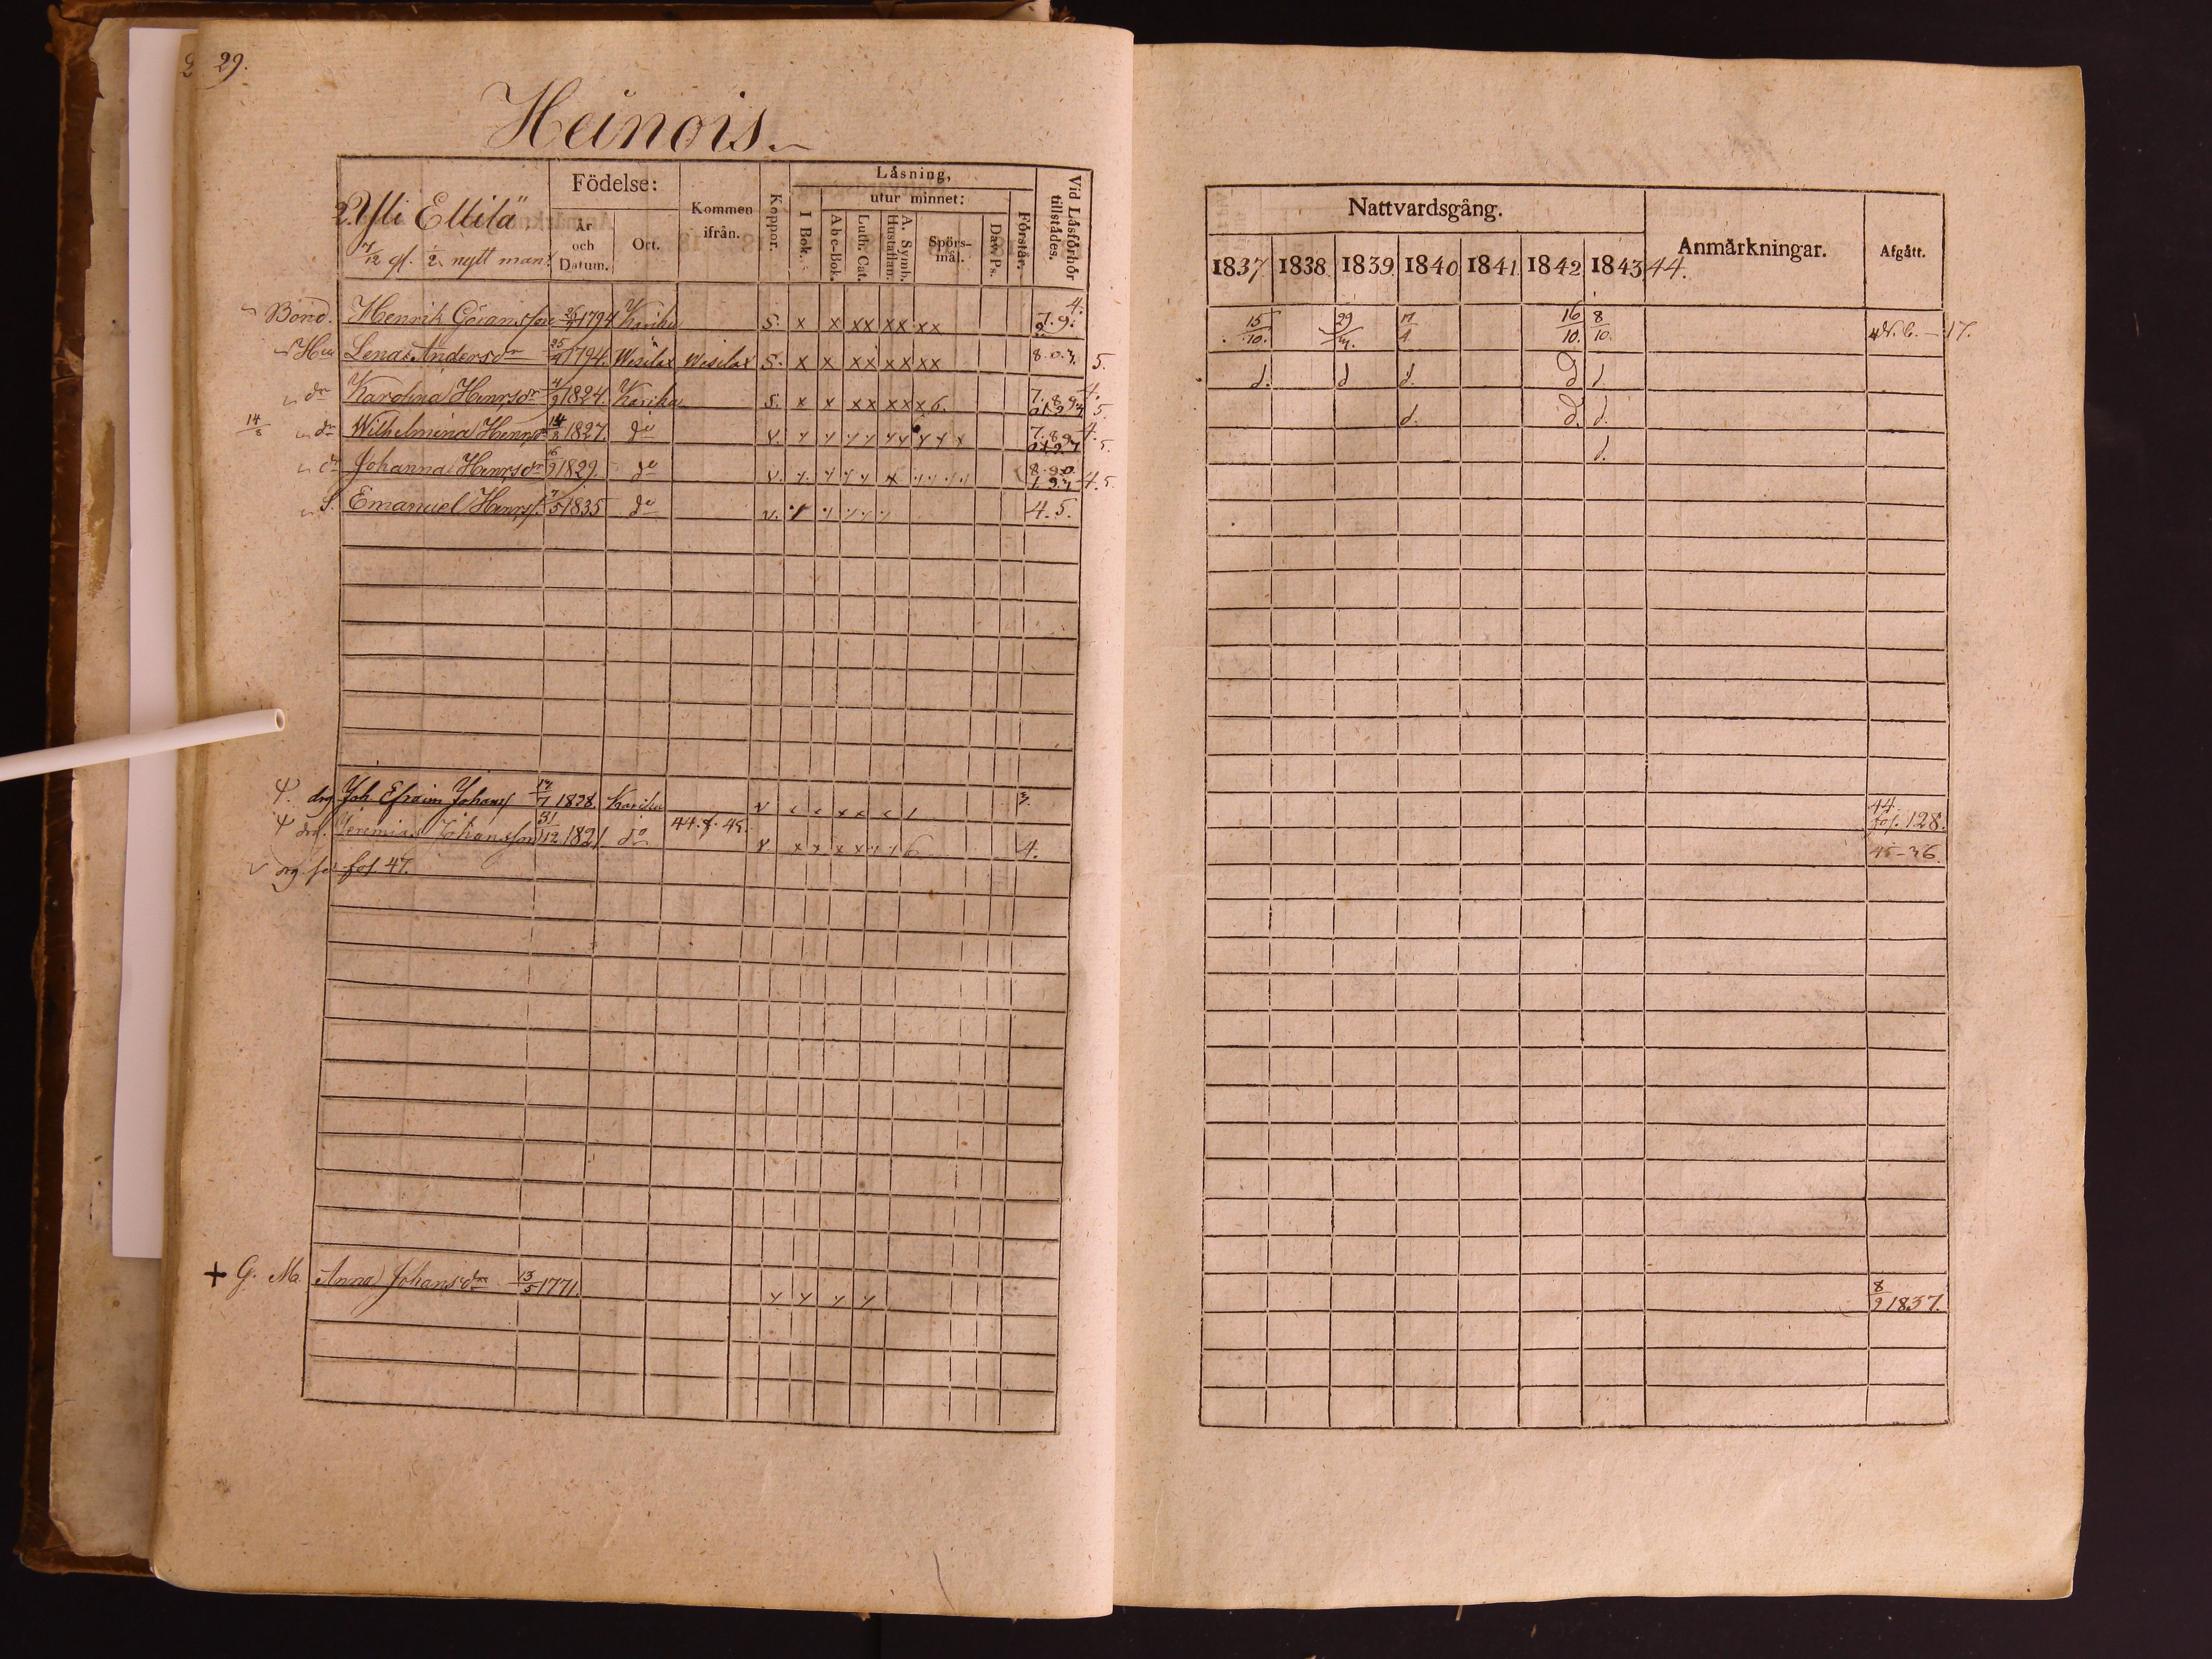 29.
Heinois.
2. Yli Ellilä
7/12 gl. 1/2 nytt mant.
Födelse:
År och Datum.
Ort.
Kommen ifrån.
Koppor.
Läsning,
I Bok.
utur minnet:
Abc-Bok.
Luth. Cat.
A. Symb. Hustaflan.
Spörsmål.
Dav. Ps.
Förstår.
Vid Läsförhör tillstådes.
Bond. Henrik Göransson 1794 Kariku S. x x xx xx xx 7. 9. 4.
Hu Lena Andersdr 25/4 1794. Wesilax Wesilax S. x x xx xx xx 8. 0. 3. 5.
dr Karolina Henrsdr 4/9 1824. Kariku S. x x xx xxx 6. 7. 8. 9. 4. 5.
14/8 dr Wilhelmina Henrsdr 14/8 1827. do v. 7. 8. 9. 4. 5.
dr Johanna Henrsdr 16/9 1829. do v. 8. 9. 0. 4. 5.
S. Emanuel Henrss. 7/5 1835 do v. 4. 5.
drg. Joh. Efraim Johanss 1828. Kariku v 3.
drg. Jeremias Johansson 31/12 1821. do 44. f. 45. v 6 4.
drg. se fol. 47.
+ G. M. Anna Johansdr 13/5 1771.
Nattvardsgång.
1837 1838 1839 1840 1841 1842 1843 44.
Anmärkningar.
Afgått.
15/10. 29/ 16/10. 8/10. 17.
d. d d. d d.
d. d. d.
d.
44. fol. 128.
45-36.
8/9 1837.